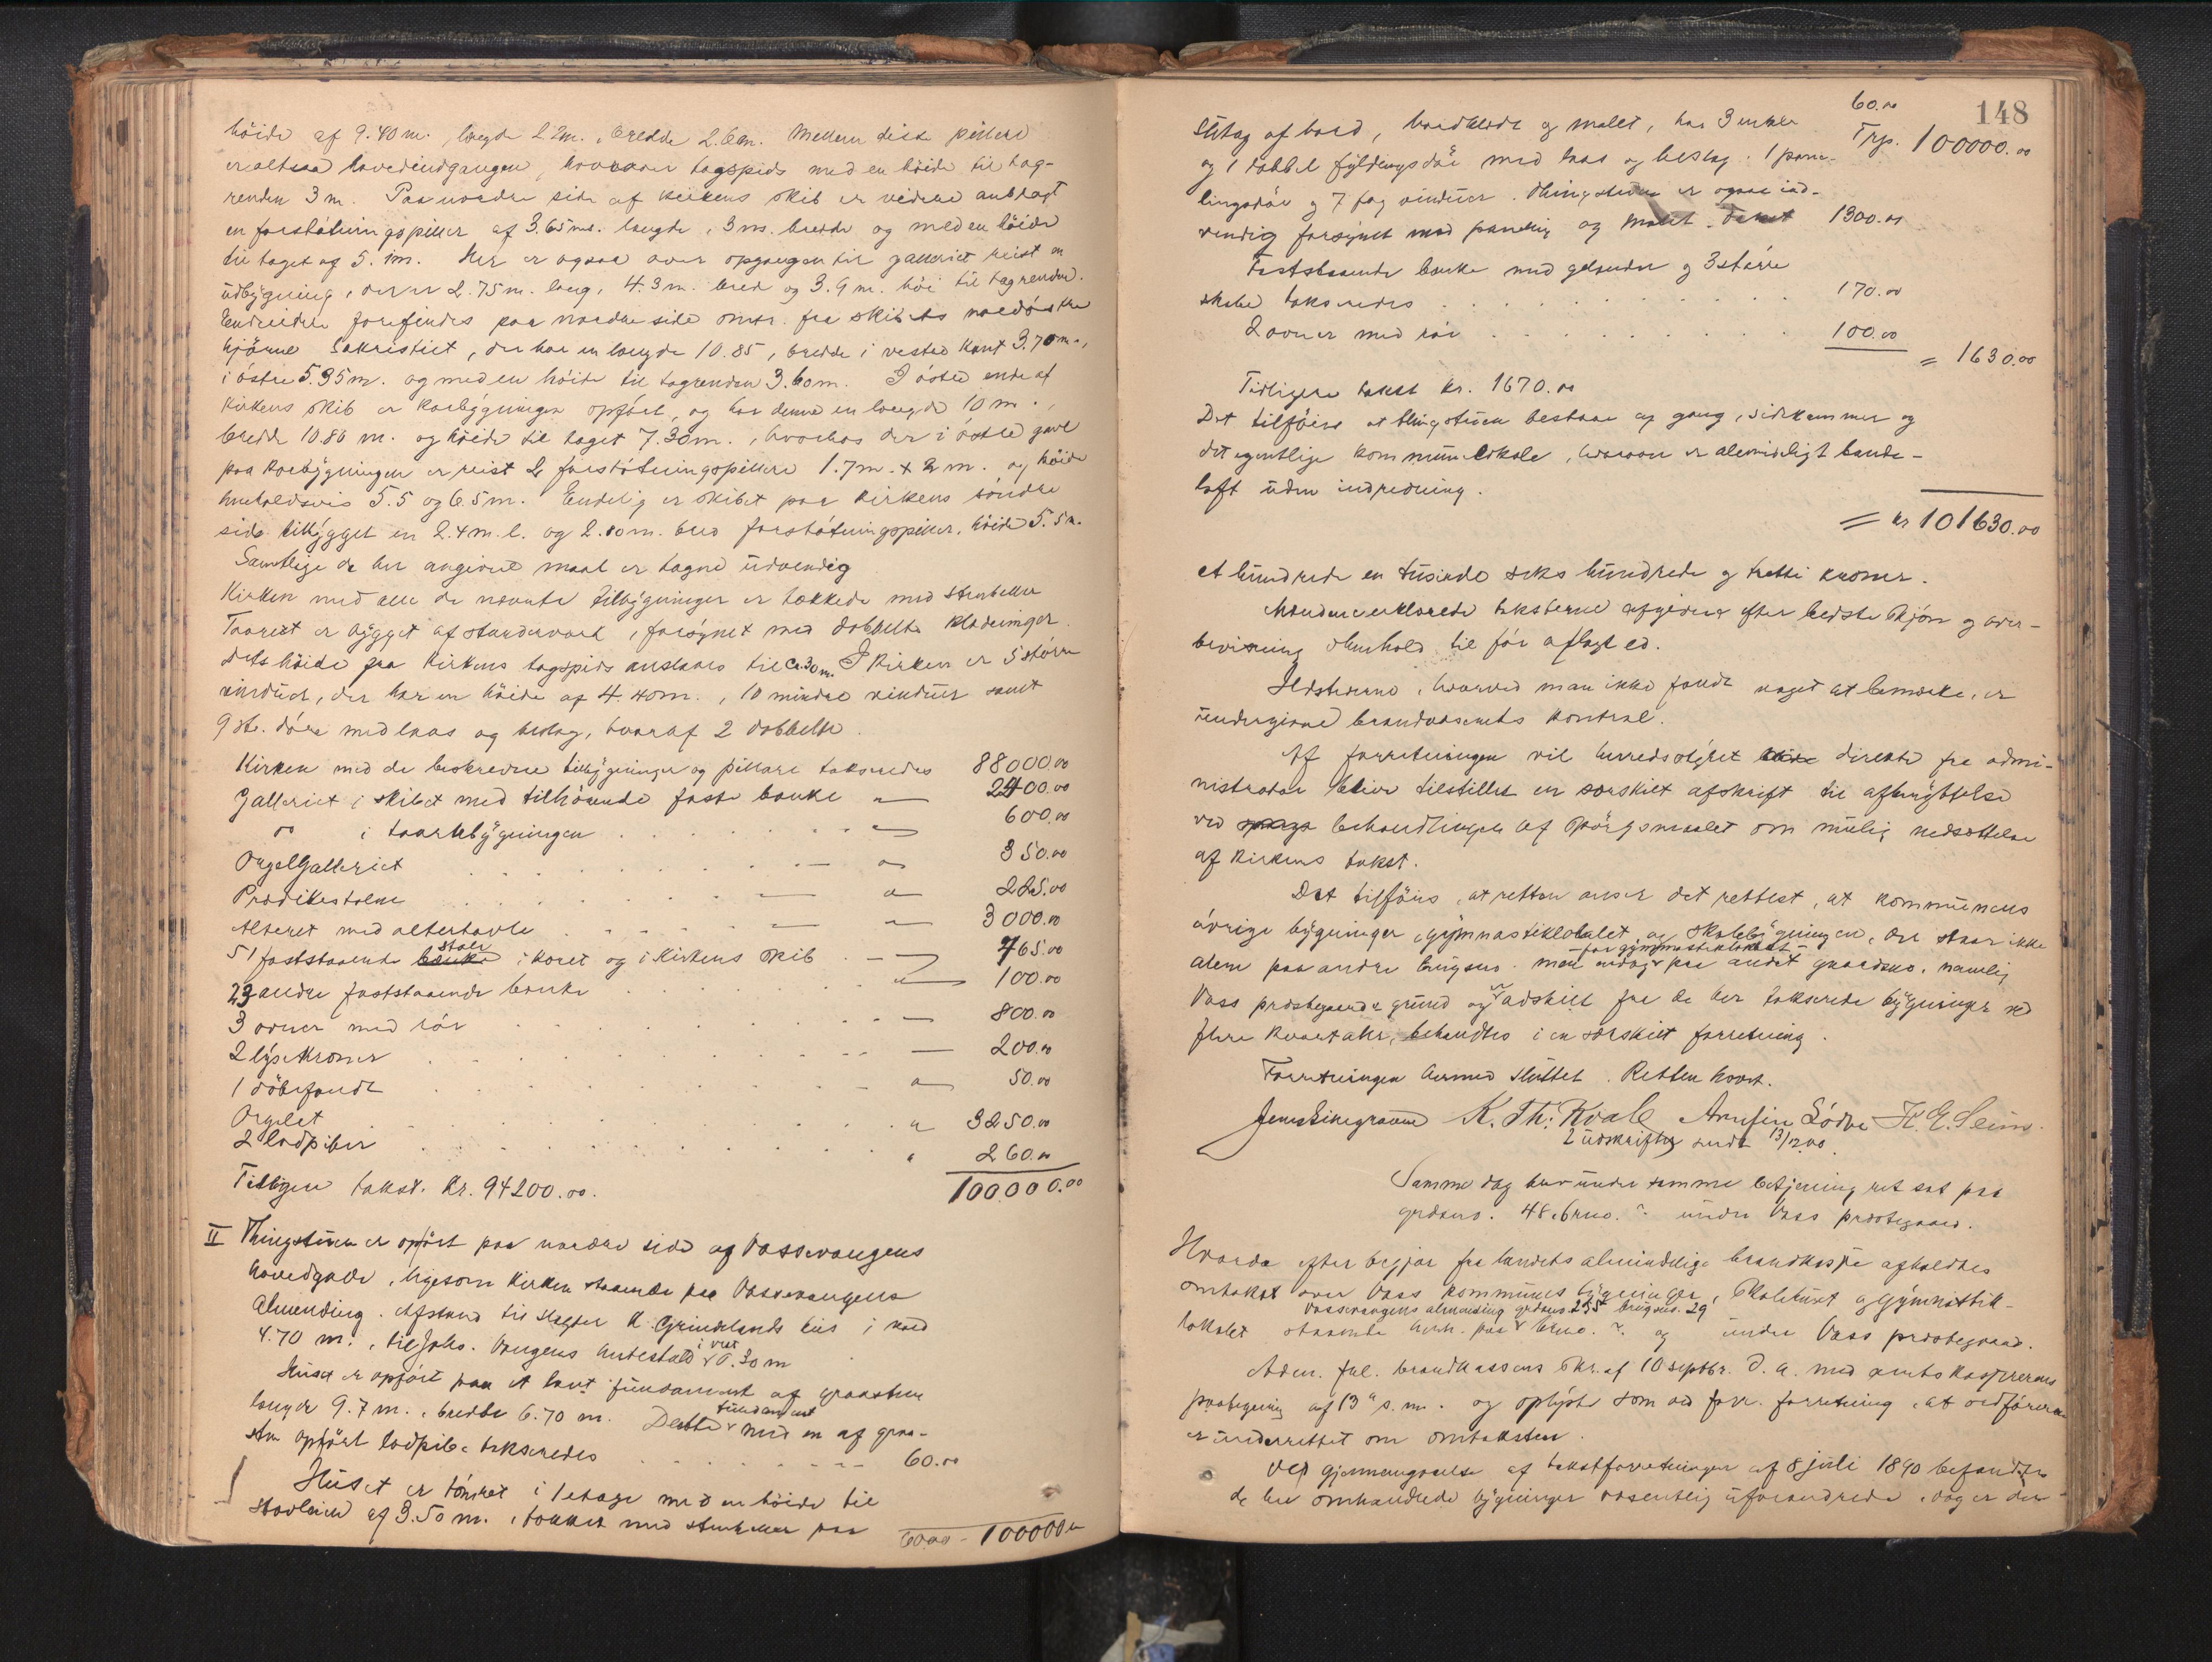 höide af 9.40 m. længde 2.2m., bredde 2.6m. Mellem disse pillere
er altsaa hovedindgangen, hvorover tagspids med en höide til tag-
renden 3 m. Paa nordre side af kirkens skib er videre anbragt
en forstötningspiller af 3.65 m. længde, 3 m. bredde og med en höide
til taget af 5.1m. Her er ogsaa over opgangen til galleriet reist en
udbygning, der er 2.75 m. lang, 4.3 m. bred og 3.9 m. höi til tagrenden.
Endvidere forefindes paa nordre side omtr. fra skibets nordöstre
hjörne Sakristiet, der har en længde 10.85, bredde i vestre kant 3.70 m.,
i östre 5.35 m. og med en höide til tagrenden 3.60 m. I östre ende af
kirkens skib er korbygningen opfört, og har denne en længde 10 m.,
bredde 10.86 m. og höide til taget 7.30 m., hvorhos der i östre gavl
paa korbygningen er reist 2 forstötningspillere 1.7 m. x 2 m. og höide
henholdsvis 5.5 og 6.5 m. Endelig er skibet paa kirkens söndre
side tilbygget en 2.4 m. l. og 2.10 m. bred forstötningspiller, höide 5.5 m.
Samtlige de her angivne maal er tagne udvendig
Kirken med alle de nævnte tilbygninger er tækkede med stenheller
Taarnet er bygget af stenderverk, forsynet med dobbelte klædninger.
Dets höide fra kirkens tagspids ansloaes til ca. 30 m. I kirken er 5 större
vinduer, der har en höide af 4.40 m., 10 mindre vinduer samt
9 st. döre med laas og beslag, hvoraf 2 dobbelte.
Kirken med de beskrevne tilbygninger og pillere takseredes 88000.00
Galleriet i skibet med tilhörende faste bænke " 2400.00
do i taarnbygningen " 600.00
Orgelgalleriet " 350.00
Prædikestolen " 225.00
Alteret med altertavle " 3000.00
51 faststaaende stole i koret og i kirkens skib 765.00
23 andre faststaaende bænke " 100.00
3 ovner med rör 800.00
2 lysekroner 200.00
1 döbefondt " 50.00
Orgelet " 3250.00
2 lodpiber " 260.00
Tidligere takst. Kr. 94200.00. 100.000.00
II Thingstuen er opfört paa nordre side af Vossevangens
hovedgade, ligesom kirken staaende paa Vossevangens
Almending. Afstand til Slagter K. Grindelands hus i nord
4.70 m., til Johs. Vangens hestestald i vest 0.30 m
Huset er opfört paa et lavt fundament af graasten
længde 9.7 m., bredde 6.70 m. Dette fundament med en af graa-
sten opfört lodpibe takseredes 60.00
Huset er tömret i 1 etage med en höide til
stavlein af 3.50 m., tækket med stenheller paa
60.00 - 100000.00
148
60.00
Trp. 100000.00
slutag af bord, bordklædt og malet, har 3 enkle
og 1 dobbel fyldingsdör med laas og beslag, 1 pane-
lingsdör og 7 fag vinduer. Thingstuen er ogsaa ind-
vendig forsynet med paneling og malet. Takst 1300.00
Faststaaende bænke med gelænder og 3 större
skabe takseredes 170.00
2 ovner med rör 100.00
= 1630.00
Tidligere takst kr. 1670.00
Det tilföies at thingstuen bestaar af gang, sidekammer og
det egentlige kommunelokale, hvorover er almindeligt bande-
loft uden indredning.
= kr 101630.00
et hundrede en tusinde seks hundrede og tretti kroner.
Mændene erklærede taksterne afgivne efter bedste skjön og over-
bevisning i henhold til för aflagt ed.
Ildstederne, hvorved man ikke fandt noget at bemærke, er
undergivne brandvæsenets kontrol.
Af forretningen vil herredsstyret direkte fra admi-
nistrator blive tilstillet en særskilt afskrift til afbenyttelse
ved behandlingen af spörgsmaalet om mulig nedsættelse
af kirkens takst.
Det tilföies, at retten anser det rettest, at kommunens
övrige bygninger, gymnastiklokalet og skolebygningen, der staar ikke
alene paa andre brugsno. men - for gymnastiklokalet - endog paa andet gaardsno. namlig
Voss prestegaards grund og er adskilt fra de her takserede bygninger ved
flere kvartaler, behandles i en særskilt forretning.
Forretningen hermed sluttet. Retten hævet.
Jens Liengraane K. Th: Kvale Arnfin Lödve K. G. Seim.
2 udskrifter sendt 13/12 00.
Samme dag blev under samme betjening ret sat paa
grdsno. 48, brno. ?. under Voss prestegaard.
Hvorda efter begjær fra landets almindelige brandkasse afholdtes
omtakst over Voss kommunes bygninger, Skolehuset og Gymnastik-
Vossevangens almending grdsno. 255 brugsno. 29
lokalet staaende henh. paa brno. ?. og under Voss prestegaard.
Adm. frl. brandkassens skr. af 10 septbr. d. a. med amtskassererens
paategning af 13de s. m. og oplyste som ved forr. forretning, at ordföreren
er underrettet om omtaksten.
Ved gjennemgaaelse af takstforretningen af 8 juli 1890 befandtes
de her omhandlede bygninger væsentlig uforandrede, dog er der